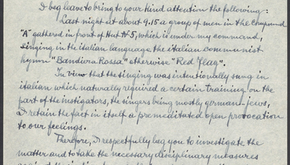 I beg leave to bring to your kind attention the following:
Last night at about 9.15 a group of men in the compound
"A" gathered in front of Hut Nº5, which is under my command,
singing in the italian language the italian communist
hymn "Bandiera Rossa" otherwise "Red Flag".
In view that the singing was intentionally sung in
italian which naturally required a certain training on the
part of the instigators, the singers being mostly german-jews,
I retain the fact in itself a premeditated open provocation
to our feelings.
Therefore, I respectfully beg you to investigate the
matter and to take the necessary disciplinary measures